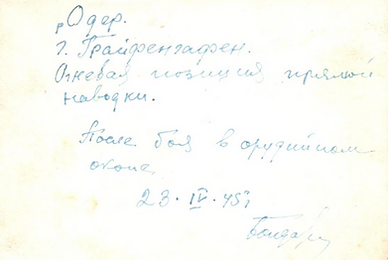 р Одер.
г. Грайфенгафен.
Огневая позиция прямой
наводки.
После боя в орудийном
окопе.
23. IV. 45 г.